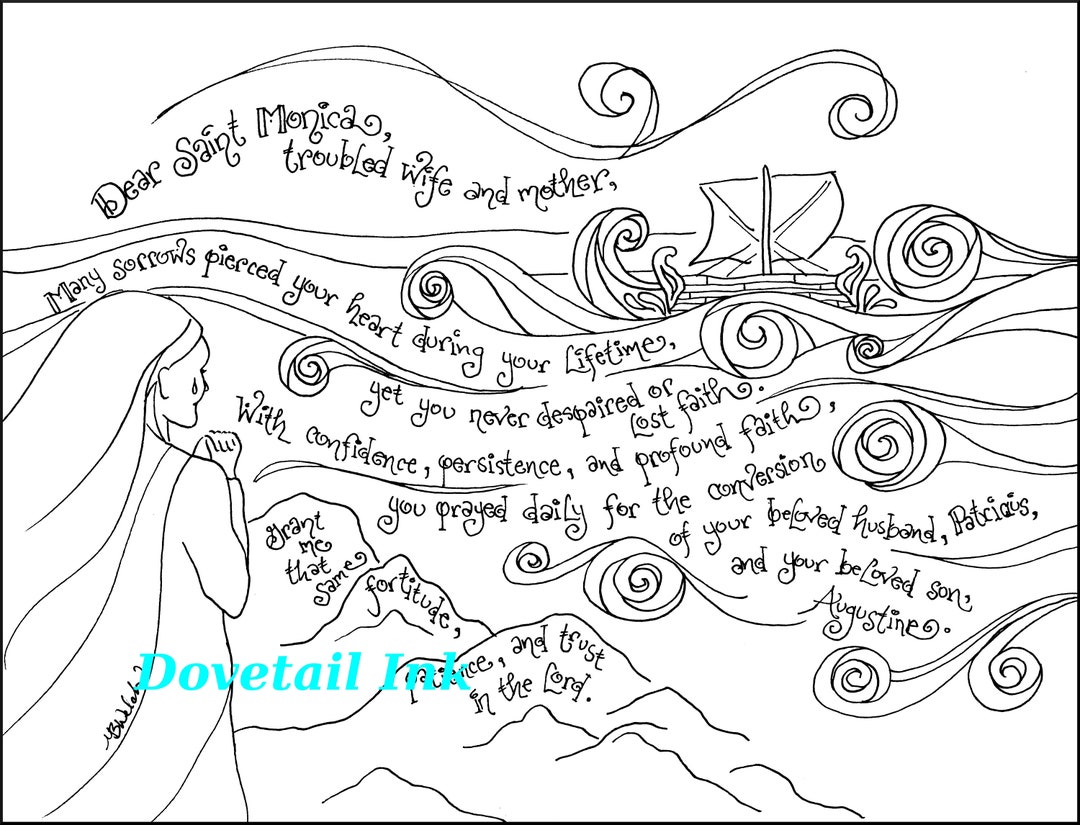 Dear Saint Monica,
troubled wife and mother,
Many sorrows pierced your heart during your lifetime,
yet you never despaired or
lost faith.
With confidence, persistence, and profound faith,
you prayed daily for the conversion
of your beloved husband, Patricius,
and your beloved son,
Augustine.
Grant
me
that
same
fortitude,
patience, and trust
in the Lord.
Dovetail Ink